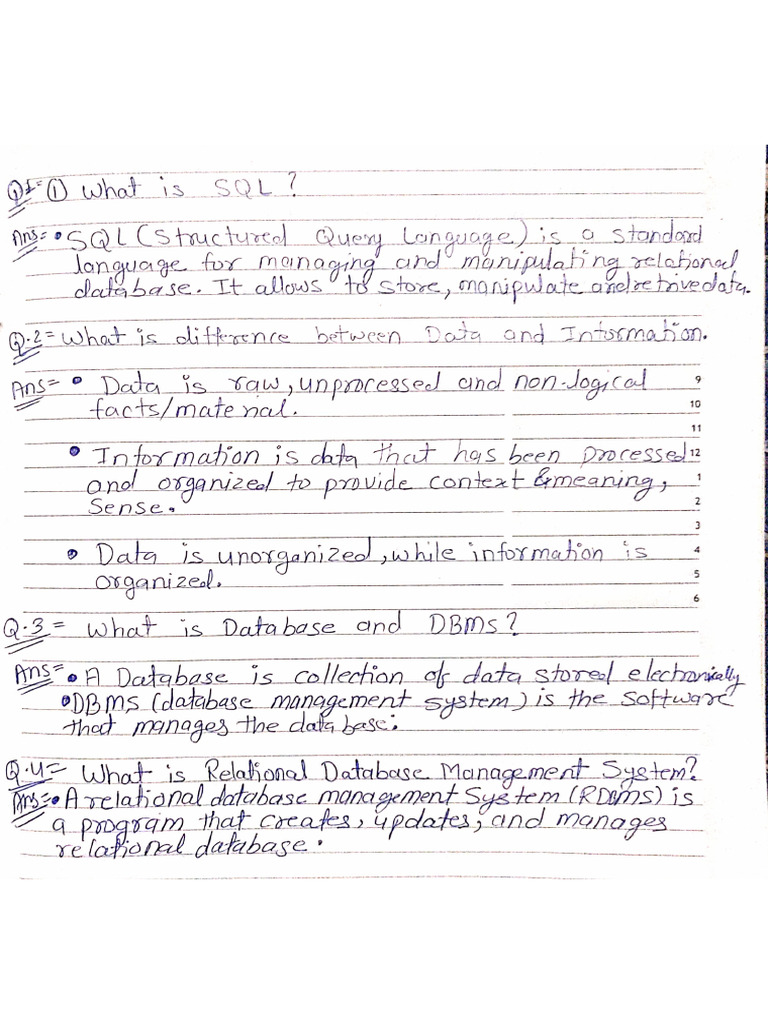 Q1= ① What is SQL?
Ans= • SQL (Structured Query Language) is a standard
language for managing and manipulating relational
database. It allows to store, manipulate and retrive data.
Q.2= What is difference between Data and Information.
Ans= • Data is raw, unprocessed and non-logical
9
facts/material.
10
11
• Information is data that has been processed
12
and organized to provide context & meaning,
1
Sense.
2
3
• Data is unorganized, while information is
4
organized.
5
6
Q.3= What is Database and DBMS?
Ans= • A Database is collection of data stored electronically
• DBMS (database management system) is the software
that manages the database.
Q.4= What is Relational Database Management System?
Ans= • A relational database management System (RDBMS) is
a program that creates, updates, and manages
relational database.